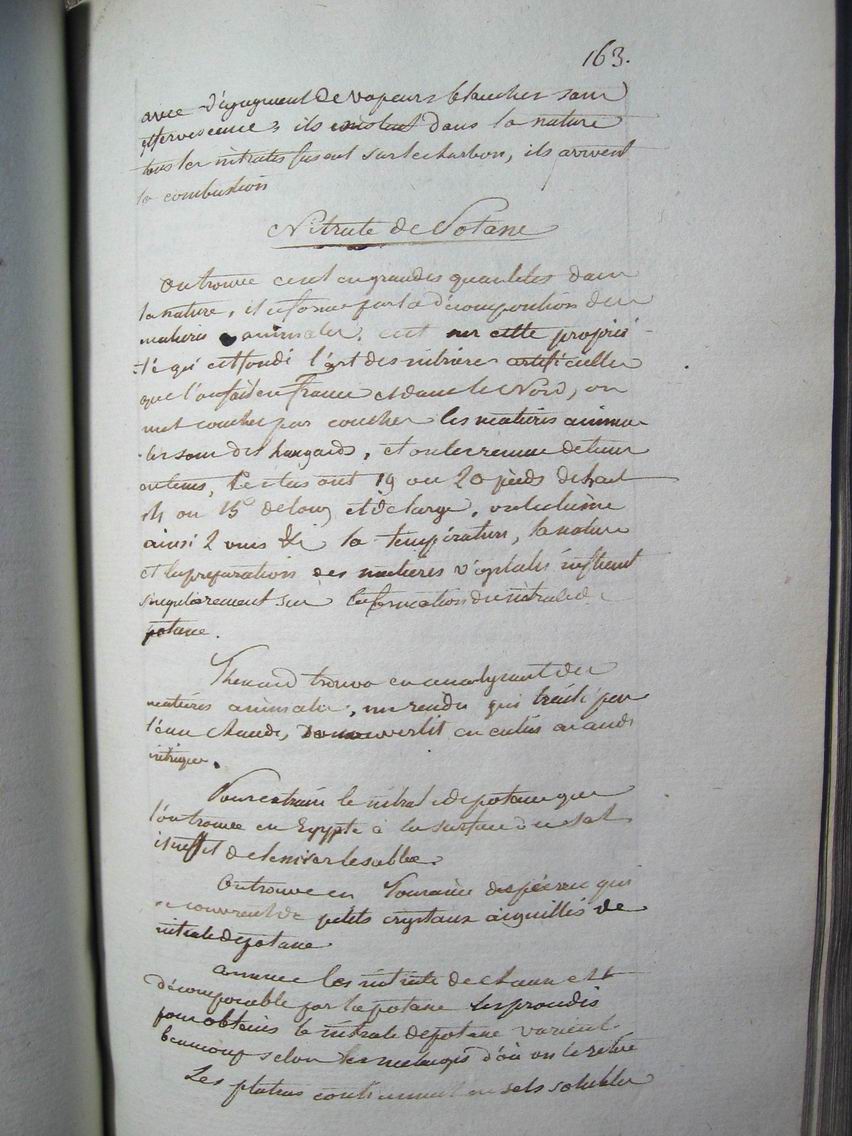 163.
avec dégagement de vapeurs blanches sans
effervescence, ils existent dans la nature
tous les nitrates fusent sur le charbon, ils avivent
la combustion
Nitrate de Potasse
On trouve ce sel en grandes quantités dans
la nature, il se forme par la décomposition des
matières animales, c'est sur cette proprié-
té qu'est fondé l'art des nitrières artificielles
que l'on fait en france et dans le Nord, on
met couches par couches les matières anima-
les sous des hangards, et on les remue de tems
en tems, Le tas ont 19 ou 20 pieds de haut
14 ou 15 de long et de large, on
ainsi 2 ans la température, la nature
et la preparation des matières végétales influent
singulièrement sur la formation du nitrate de
potasse.
Thenard trouva en analysant des
matières animales, un residu qui traité par
l'eau chaude, se convertit en acide
nitrique.
Pour extraire le nitrate de potasse que
l'on trouve en Egypte à la surface du sol
il suffit de lessiver le sable.
On trouve en Touraine des pierres qui
se couvrent de petits crystaux aiguillés de
nitrate de potasse
comme les nitrate de chaux est
décomposable par la potasse les procédés
pour obtenir le nitrate de potasse varient
beaucoup selon les mélanges d'où on le retire
Les platras contiennent en sels solubles